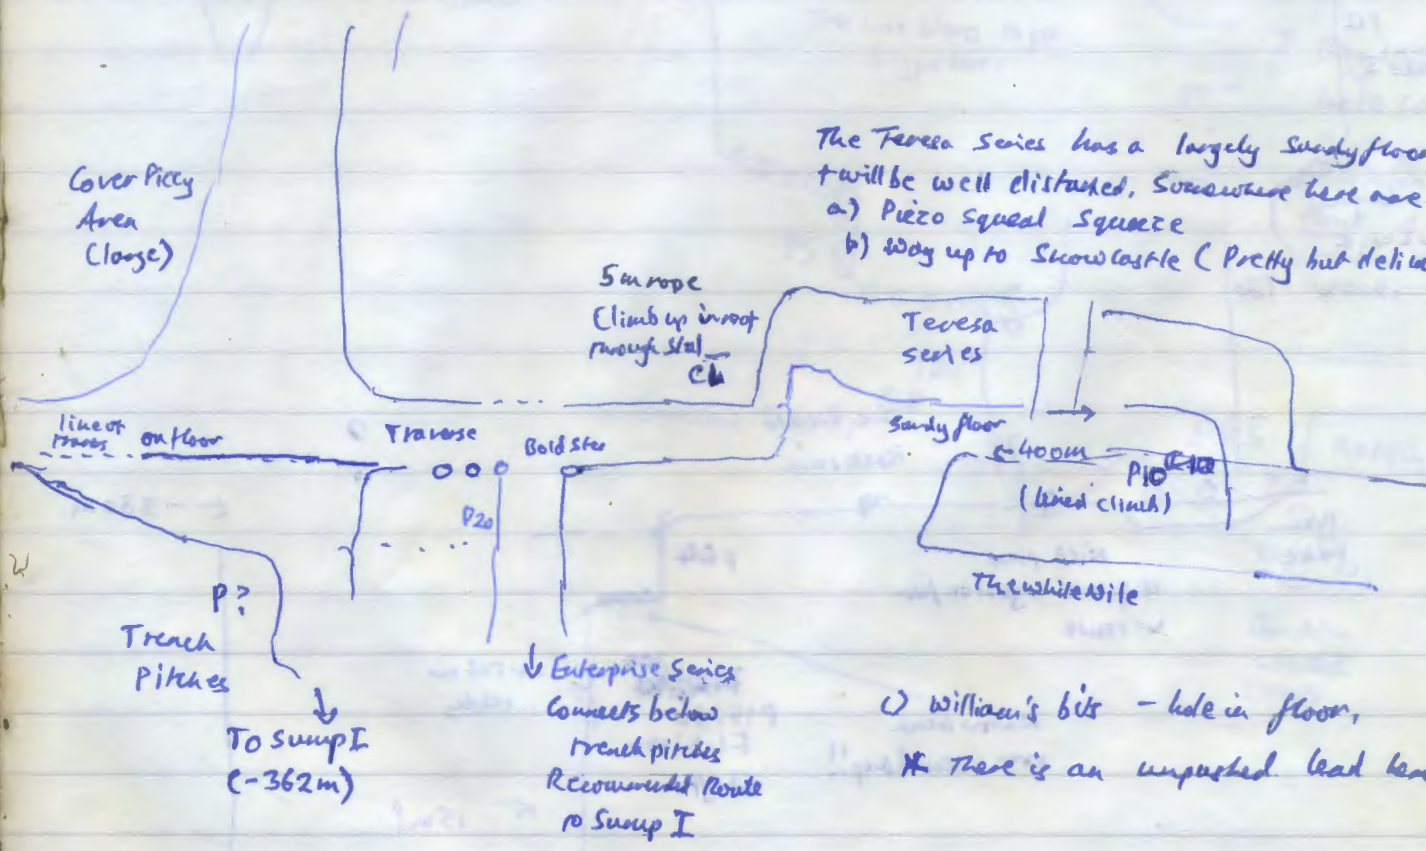 The Teresa Series has a largely Sandy floor
+ will be well disturbed. Somewhere here are
a) Piezo Squeal Squeeze
b) way up to Snowcastle (Pretty but
Cover Piccy
Area
(large)
5m rope
Climb up in roof
through Stal
C4
Teresa
series
line of
on floor
Traverse
Bold Step
Sandy floor
← 400m
P10
(lined climb)
P20
The white Nile
P?
Trench
Pitches
To Sump I
(-362m)
↓ Enterprise Series
Connects below
trench pitches
Recommended Route
to Sump I
c) William's bits - hole in floor,
* There is an unpushed lead